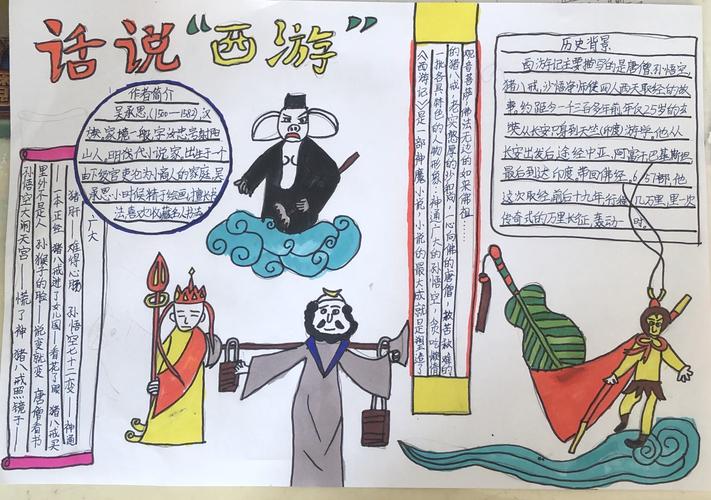 话说“西游”
作者简介
吴承恩,(1500—1582),汉
族,家境一般,字汝忠,号射阳
山人,明代小说家,出生于一个
由下级官吏沦为商人的家庭,吴
承恩小时候精于绘画,擅长书
法,喜欢收藏名人书法
孙悟空大闹天宫——慌了神 猪八戒照镜子——
里外不是人 孙猴子的脸——说变就变 唐僧看书
一本正经 猪八戒进了女儿国——看花了眼 猪八戒买
猪肝——难得心肠 孙悟空七十二变——神通
广大
《西游记》是一部神魔小说,小说的最大成就是塑造了
一批各具特色的人物形象:神通广大的孙悟空,贪吃懒惰
的猪八戒,老实憨厚的沙和尚,一心向佛的唐僧,救苦救难的
观音菩萨,佛法无边的如来佛祖……
历史背景
西游记主要描写的是唐僧,孙悟空,
猪八戒,沙悟净师徒四人西天取经的故
事。约距今一千三百多年前,年仅25岁的玄
奘从长安只身到天竺(印度)游学,他从
长安出发后,途经中亚,阿富汗巴基斯坦,
最后到达印度,带回佛经657部,他
这次取经,前后十九年,行程几万里,是一次
传奇式的万里长征,轰动一时。